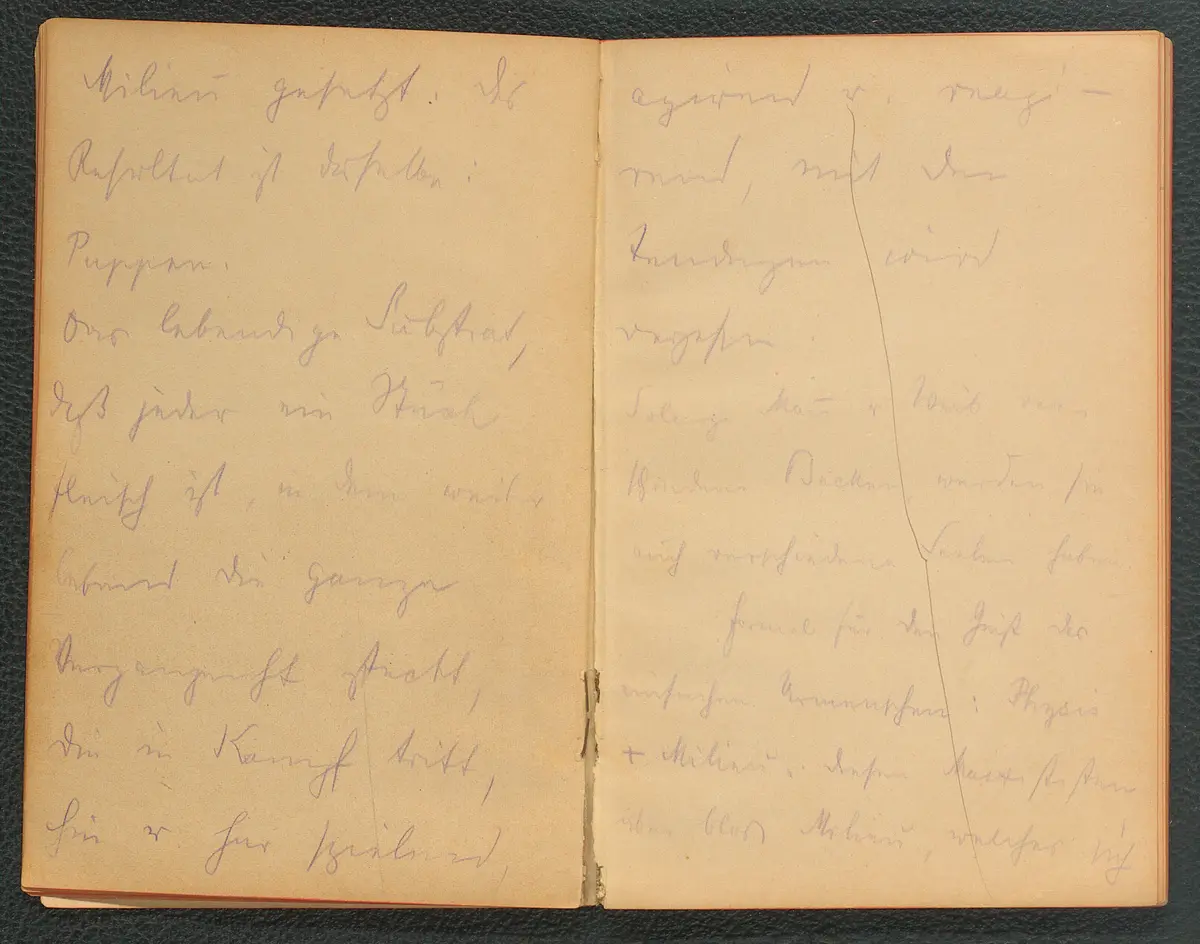 Milieu gesetzt. Das
Resultat ist dasselbe:
Puppen.
Das lebendige Substrat,
daß jeder ein Stück
Fleisch ist, in dem weiter
lebend die ganze
Vergangenheit steckt,
die in Kampf tritt,
hin u. her spielend,
agirend u. reagi-
rend, mit den
Tendenzen wird
vergessen.
Solange Mann u Weib
verschiedene Becken werden sie
auch verschiedene Seelen haben.
Formel für den Geist des
einfachen Urmenschen: Physis
+ Milieu. diesen Marxisten
aber bloß Milieu, welches sich